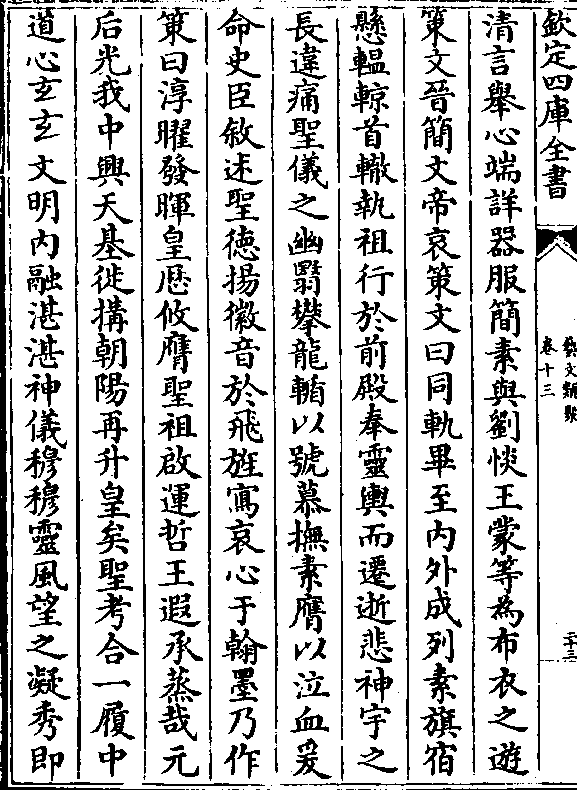 欽定四庫全書
藝文類聚
卷十三
二十三
清言舉心端詳器服簡素與劉惔王蒙等為布衣之遊
策文晉簡文帝哀策文曰同軌畢至内外成列素旗宿
懸轀輬首轍執祖行於前殿奉靈輿而遷逝悲神宇之
長違痛聖儀之幽翳攀龍輴以號慕撫素膺以泣血爰
命史臣敘述聖德揚徽音於飛旌寫哀心于翰墨乃作
策曰淳曜發暉皇歴攸膺聖祖啟運哲王遐承蒸哉元
后光我中興天基徙搆朝陽再升皇矣聖考合一履中
道心玄玄文明内融湛湛神儀穆穆靈風望之凝秀即